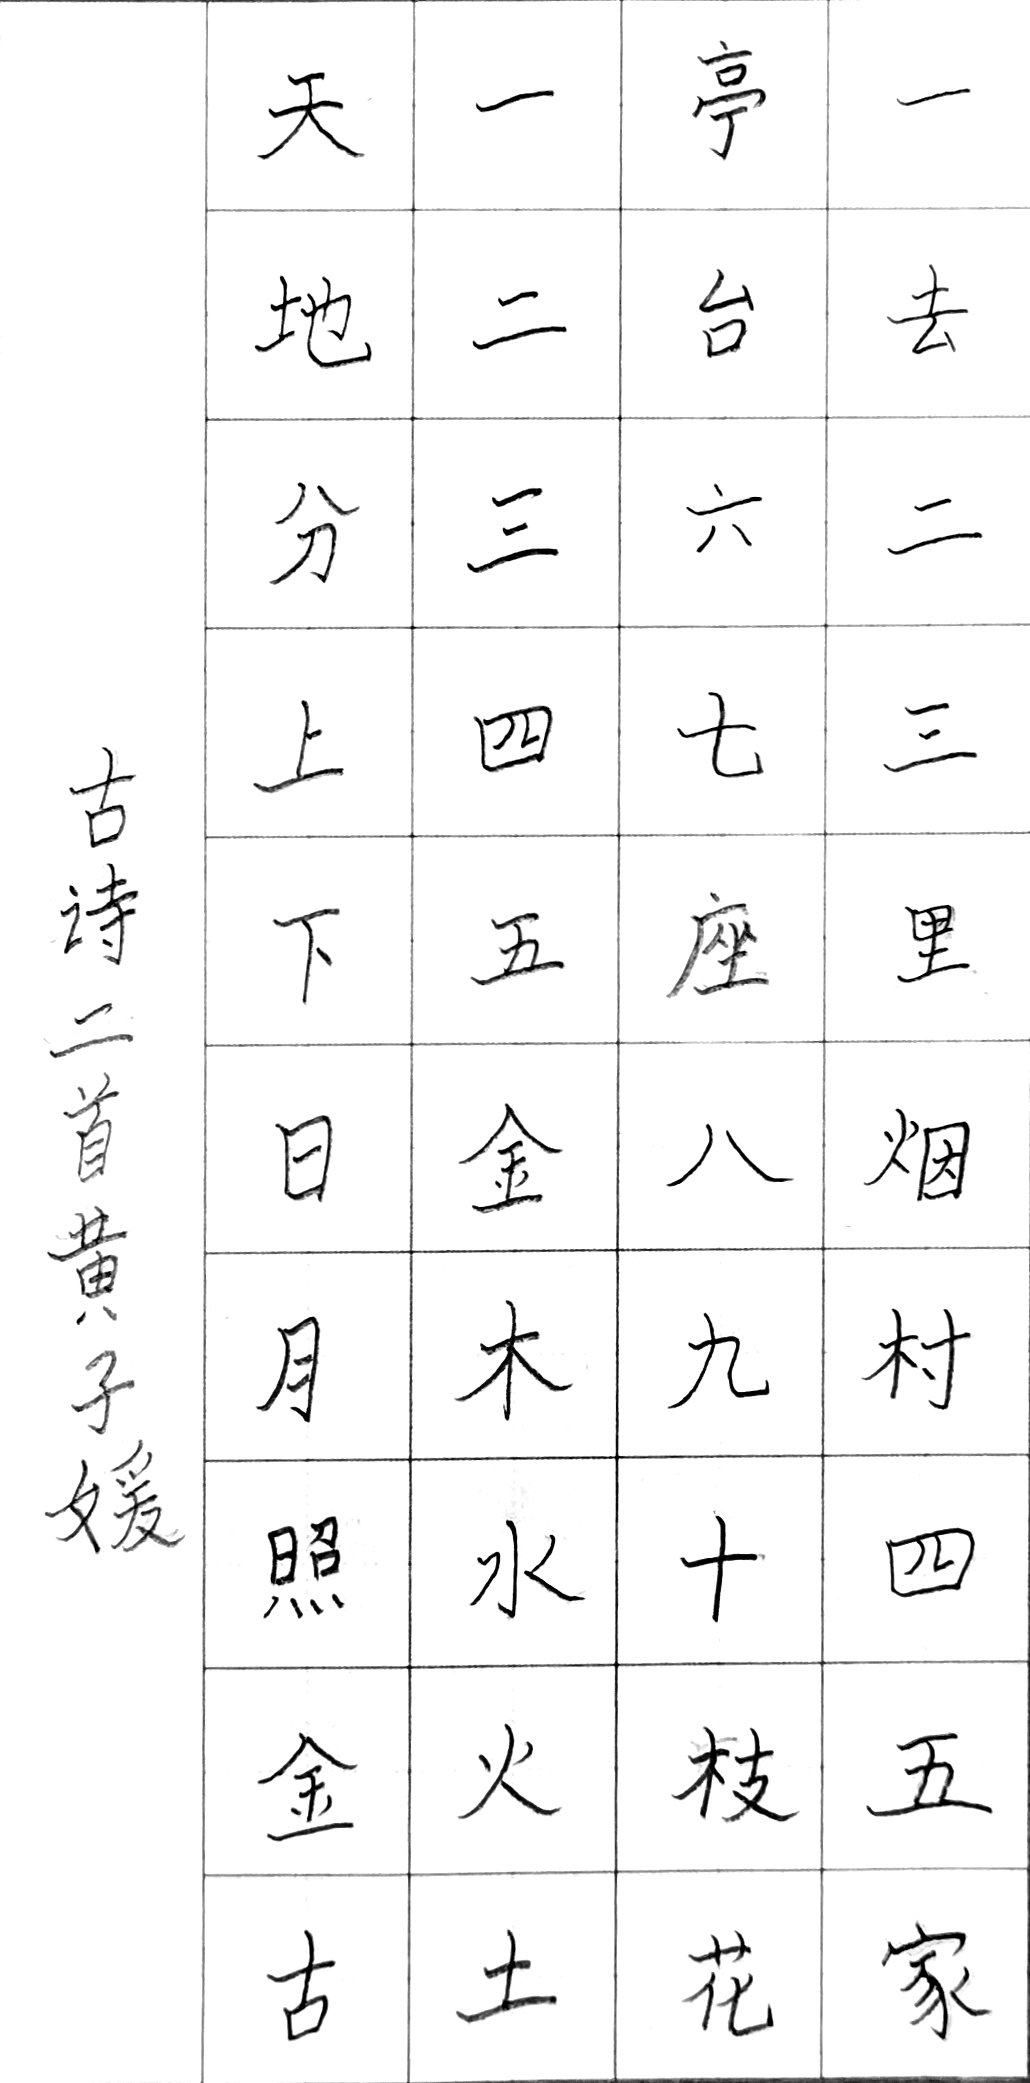 一去二三里烟村四五家
亭台六七座八九十枝花
一二三四五金木水火土
天地分上下日月照金古
古诗二首黄子媛